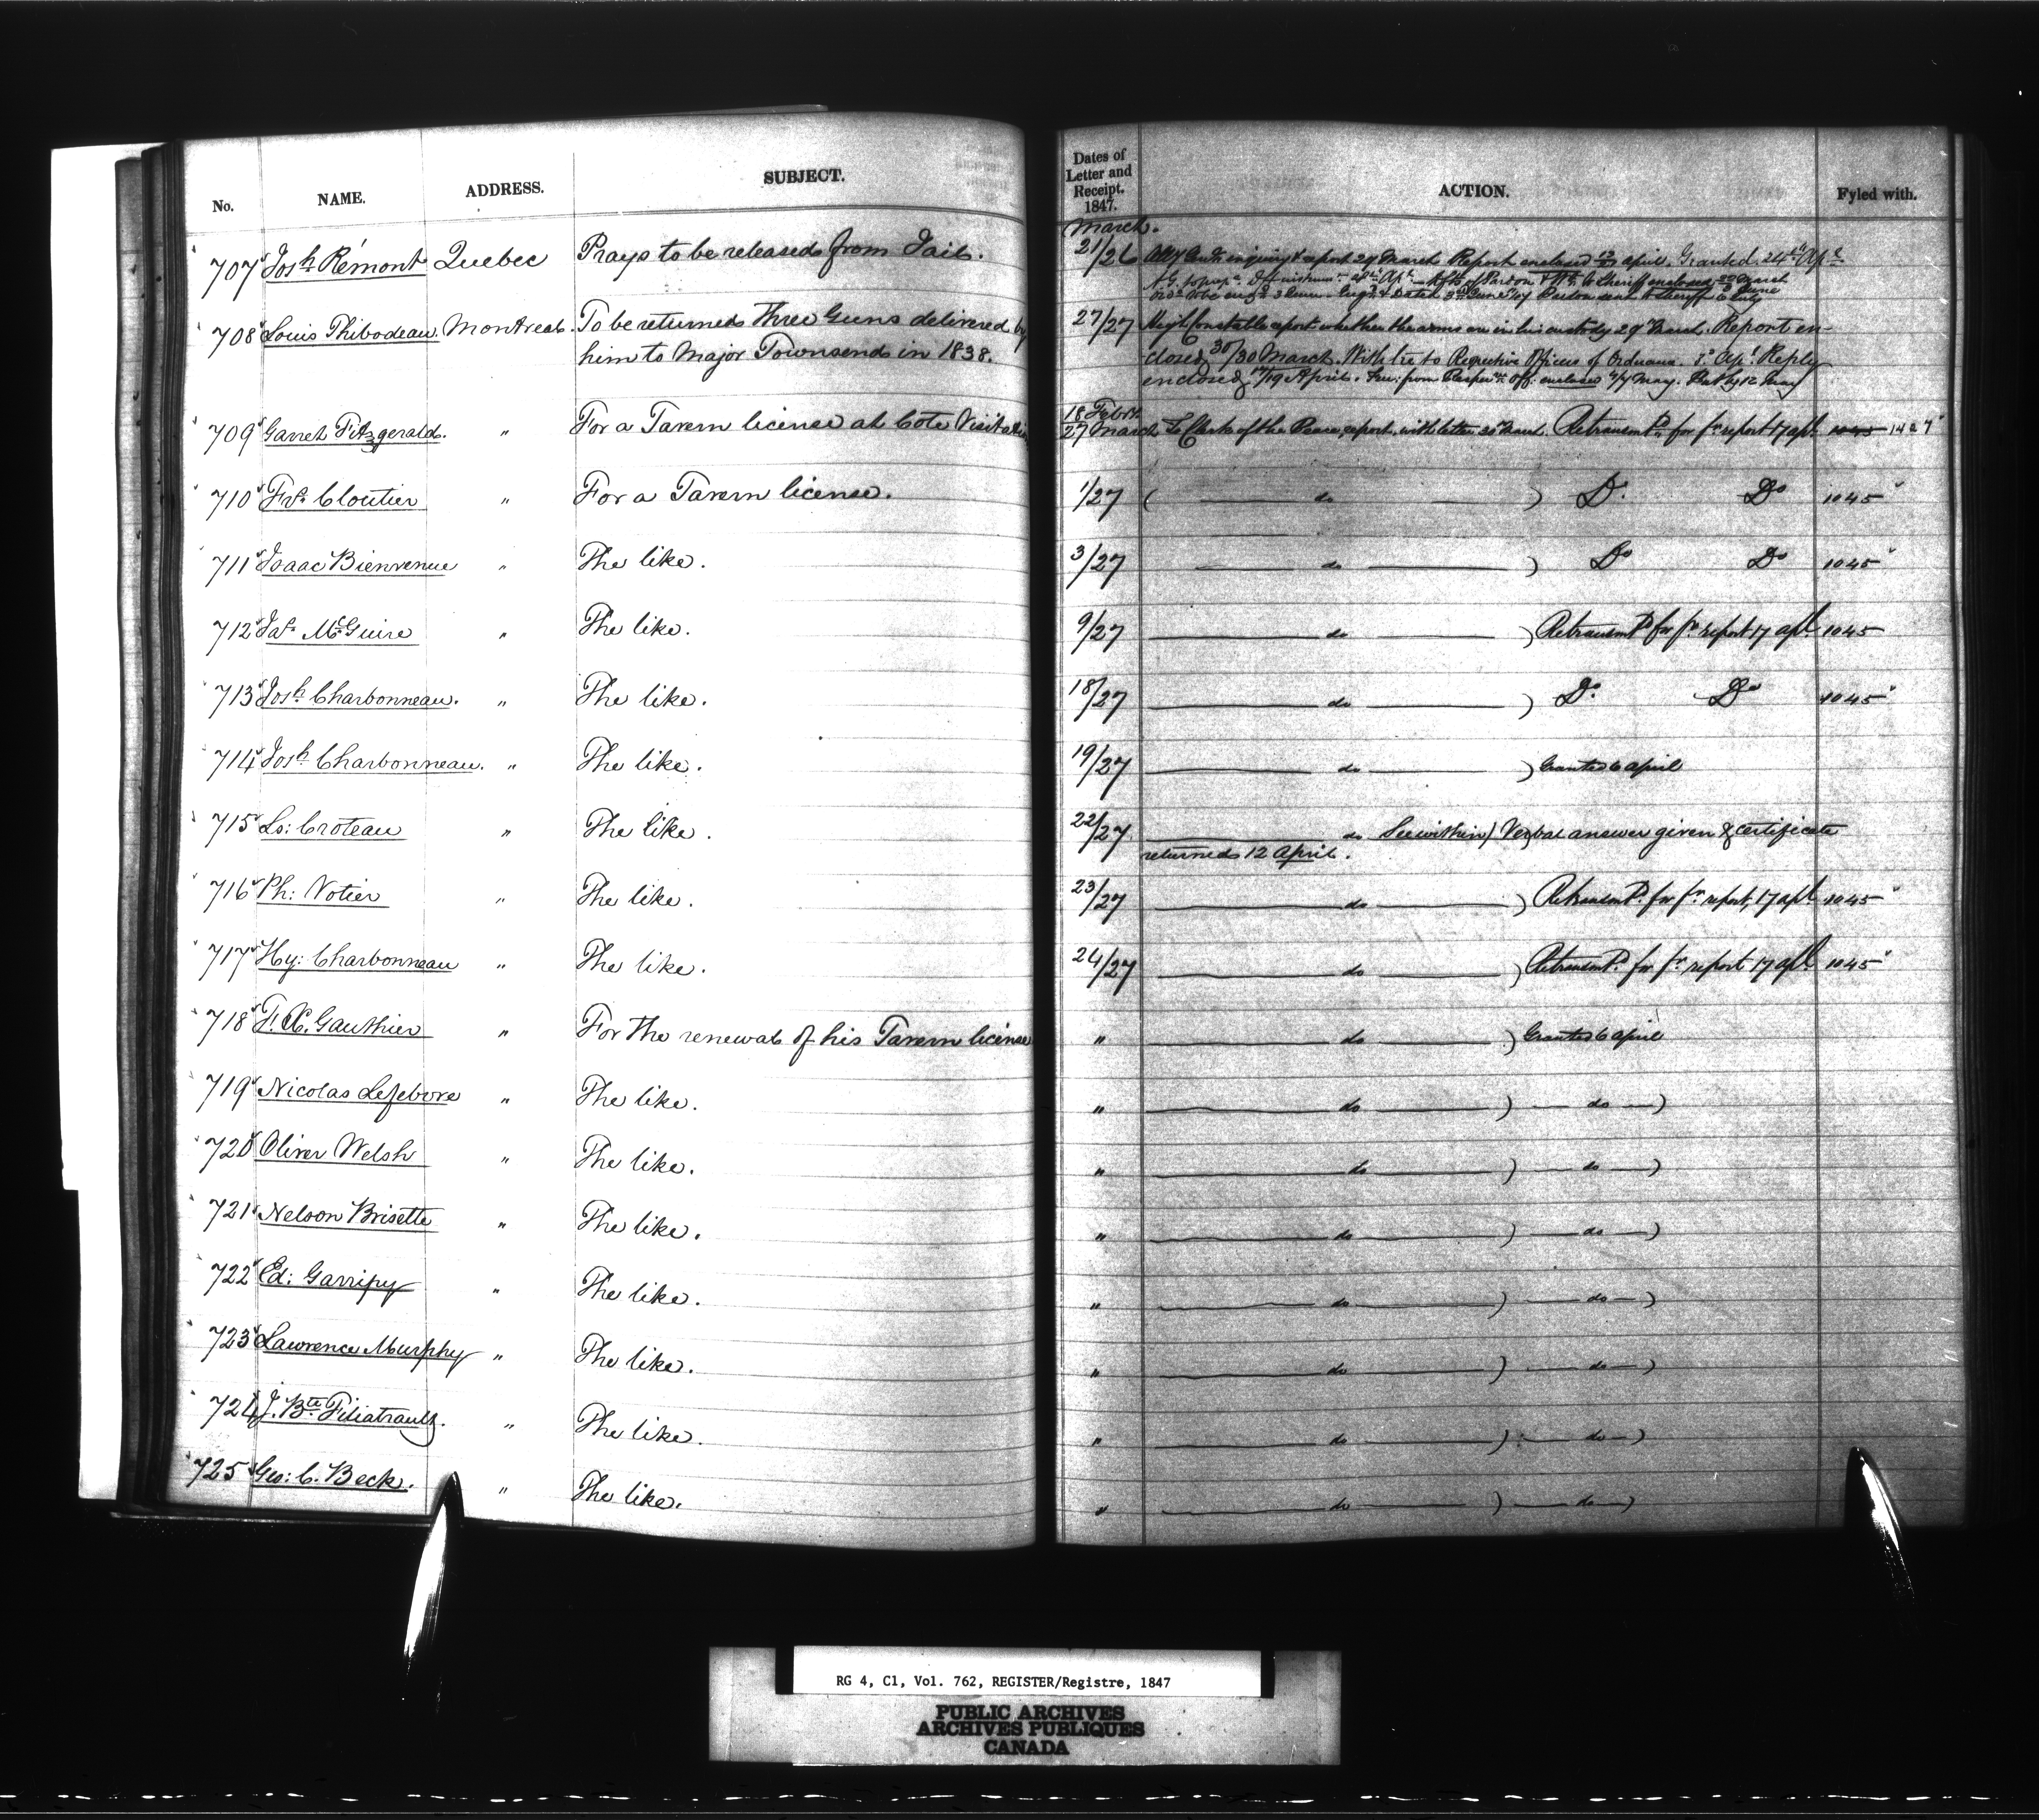 No. NAME. ADDRESS. SUBJECT. Dates of Letter and Receipt. 1847. ACTION. Fyled with.
March.
707 Josh Rémont Quebec Prays to be released from Jail. 21/26 Report enclosed april. Granted. 24th Apl
Pardon sent to Sheriff 6 July
708 Louis Thibodeau. Montreal. To be returned three Guns delivered by 27/27 High Constable report whether the arms are in his custody 29 March. Report en-
him to Major Townsend in 1838. closed 30/30 March. With to Respective Officers of Ordnance 3d Apl. Reply
enclosed 17/19 April. from Respve Off: enclosed 4/4 May. 12 May
18 Febry
709 Garret Fitzgerald. " For a Tavern license at Cote Visitation 27 March To Clerk of the Peace, report, with letter 30 March. Retransmd for fr report 17 apl 1045 1427
710 Frs. Cloutier " For a Tavern license. 1/27 ( do ) Do Do 1045
711 Isaac Bienvenue " The like. 3/27 do ) Do Do 1045
712 Jas. McGuire " The like. 9/27 do ) Retransmd for fr report 17 apl 1045
713 Josh Charbonneau. " The like. 18/27 do ) Do Do 1045
714 Josh Charbonneau. " The like. 19/27 do ) Granted 6 april
715 Ls: Croteau " The like. 22/27 do See within) Verbal answer given & certificate
returned 12 April.
716 Ph: Votier " The like. 23/27 do ) Retransmd for fr report, 17 apl 1045
717 Hy: Charbonneau " The like. 24/27 do ) Retransmd for fr report 17 apl 1045
718 F. X. Gauthier " For the renewal of his Tavern license " do ) Granted 6 april
719 Nicolas Lefebvre " The like. " do ) do )
720 Oliver Welsh " The like. " do ) do )
721 Nelson Brisette " The like. " do ) do )
722 Ed: Garripy " The like. " do ) do )
723 Lawrence Murphy " The like. " do ) do )
724 J. Bte Filiatrault. " The like. " do ) do )
725 Geo: C. Beck. " The like. " do ) do )
RG 4, C1, Vol. 762, REGISTER/Registre, 1847
PUBLIC ARCHIVES
ARCHIVES PUBLIQUES
CANADA